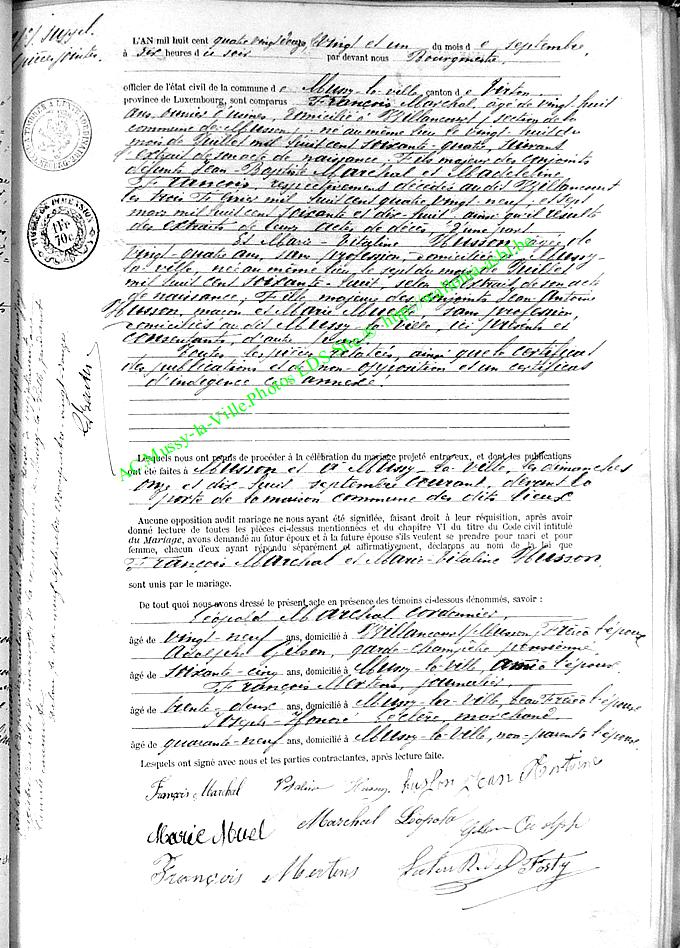 L'AN mil huit cent quatre vingt douze, vingt et un du mois de septembre,
à dix heures du soir par devant nous Bourgmestre
officier de l'état civil de la commune de Mussy-la-ville, canton de Virton,
province de Luxembourg, sont comparus François Marchal, âgé de vingt huit
ans, ouvrier d'usines, domicilié à Willancourt, section de la
commune de Musson, né au même lieu le vingt huit du
mois de Juillet mil huit cent soixante-quatre, suivant
l'extrait de son acte de naissance, fils majeur des conjoints
défunts Jean-Baptiste Marchal et Madeleine
François, respectivement décédés au dit Willancourt
les trois Février mil huit cent quatre vingt-neuf, et sept
mars mil huit cent soixante et dix-huit, ainsi qu'il résulte
des extraits de leurs actes de décès, d'une part,
Et Marie Vitaline Husson, âgée de
vingt-quatre ans, sans profession, domiciliée à Mussy-
la-ville, née au même lieu le sept du mois de Juillet
mil huit cent soixante-huit, selon l'extrait de son acte
de naissance, Fille majeure des conjoints Jean Antoine
Husson, maçon et Marie Muel, sans profession,
domiciliés au dit Mussy-la-ville, ici présents et
consentants, d'autre part.
Toutes les pièces relatées, ainsi que le certificat
des publications et de non-opposition et un certificat
d'indigence annexé.
Lesquels nous ont requis de procéder à la célébration du mariage projeté entre eux, et dont les publications
ont été faites à Musson et à Mussy-la-ville, les dimanches
onze et dix-huit septembre courant, devant la
porte de la maison commune des dits lieux
Aucune opposition audit mariage ne nous ayant été signifiée, faisant droit à leur réquisition, après avoir
donné lecture de toutes les pièces ci-dessus mentionnées et du chapitre VI du titre du Code civil intitulé
du Mariage, avons demandé au futur époux et à la future épouse s'ils veulent se prendre pour mari et pour
femme, chacun d'eux ayant répondu séparément et affirmativement, déclarons au nom de la loi que
François Marchal et Marie-Vitaline Husson
sont unis par le mariage.
De tout quoi nous avons dressé le présent acte en présence des témoins ci-dessous dénommés, savoir :
Léopold Marchal cordonnier,
âgé de vingt-neuf ans, domicilié à Willancourt/Musson, Frère l'époux
Adolphe Gilson, garde-champêtre pensionné
âgé de soixante-cinq ans, domicilié à Mussy-la-ville, ami l'époux
François Mertens, journalier,
âgé de trente-deux ans, domicilié à Mussy-la-ville, beau Frère l'épouse
Joseph-Honoré Leclère, marchand
âgé de quarante-neuf ans, domicilié à Mussy-la-ville, non-parent l'épouse
Lesquels ont signé avec nous et les parties contractantes, après lecture faite.
François Marchal Husson Jean Antoine
Marie Muel Marchal Léopold Gilson Adolphe
François Mertens
AC.Mussy-la-Ville.Photos EDS.Site @ http://mahoma-asbl.be
TIMBRE DE DIMENSION
1Fr
70c